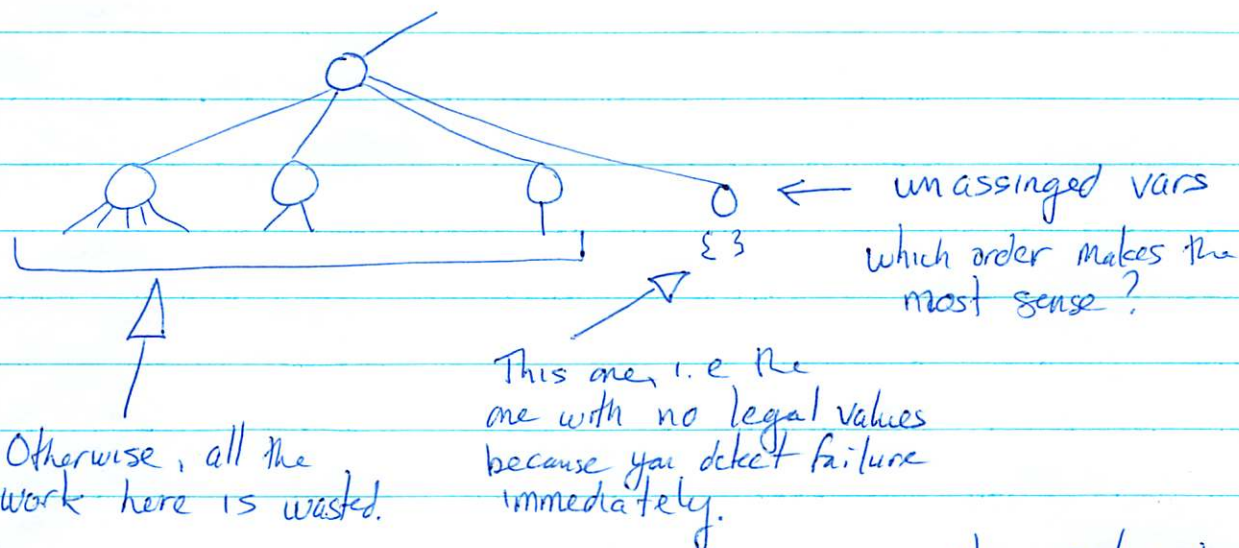 unassinged vars
which order makes the
most sense?
{ }
This one, i.e the
one with no legal values
because you detect failure
immediately.
Otherwise, all the
work here is wasted.